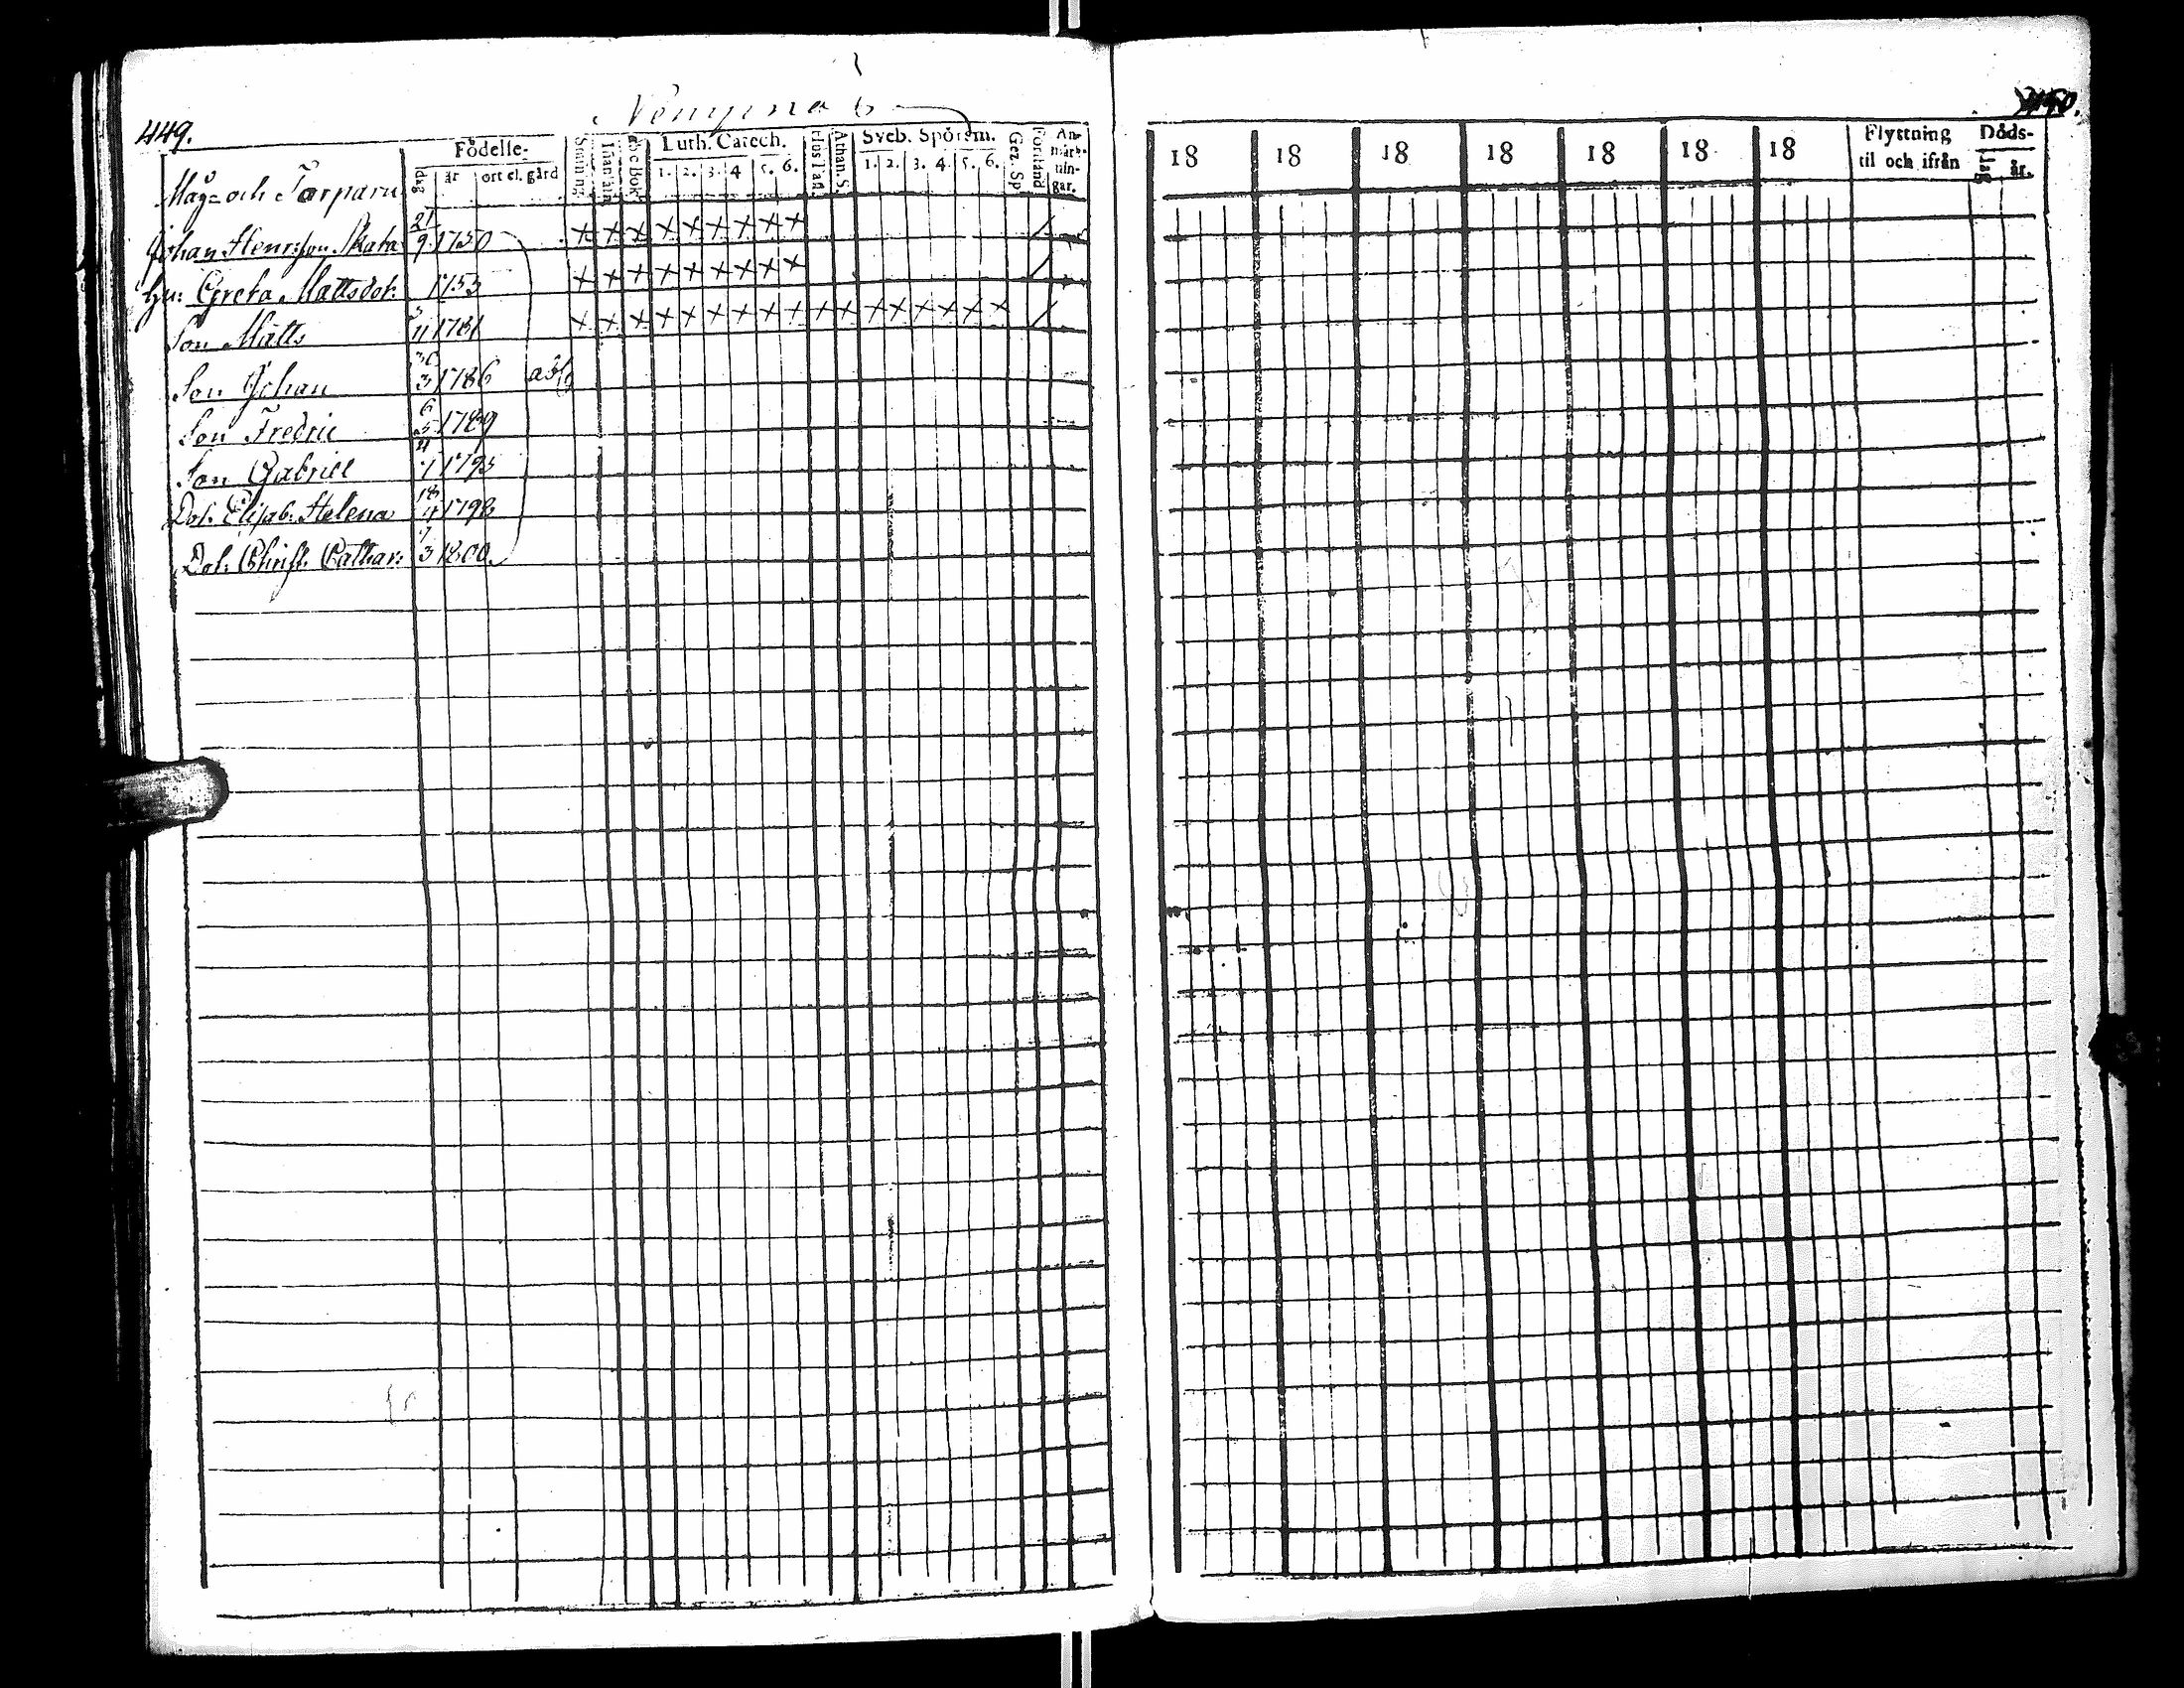 449.
Födelse-
Luth. Catech.
Sveb. Spörsm.
An-
märk-
nin-
gar.
dag år ort el. gård
abc Bok
1. 2. 3. 4 5. 6.
Athan. S.
1. 2. 3. 4. 5. 6.
Gez. Sp
Förstånd
Måg- och Torpare
Johan Henrsson Skata 21/9 1750
hu: Greta Mattsdot: 1753
Son Matts 1781
Son Johan 30/3 1786
Son Fredric 6/5 1789
Son Gabriel 4/1 1795
Dot: Elisab: Helena 18/4 1798
Dot: Christ. Cathar: 7/3 1800.
450.
18 18 18 18 18 18 18
Flyttning
til och ifrån
Döds-
dag år.